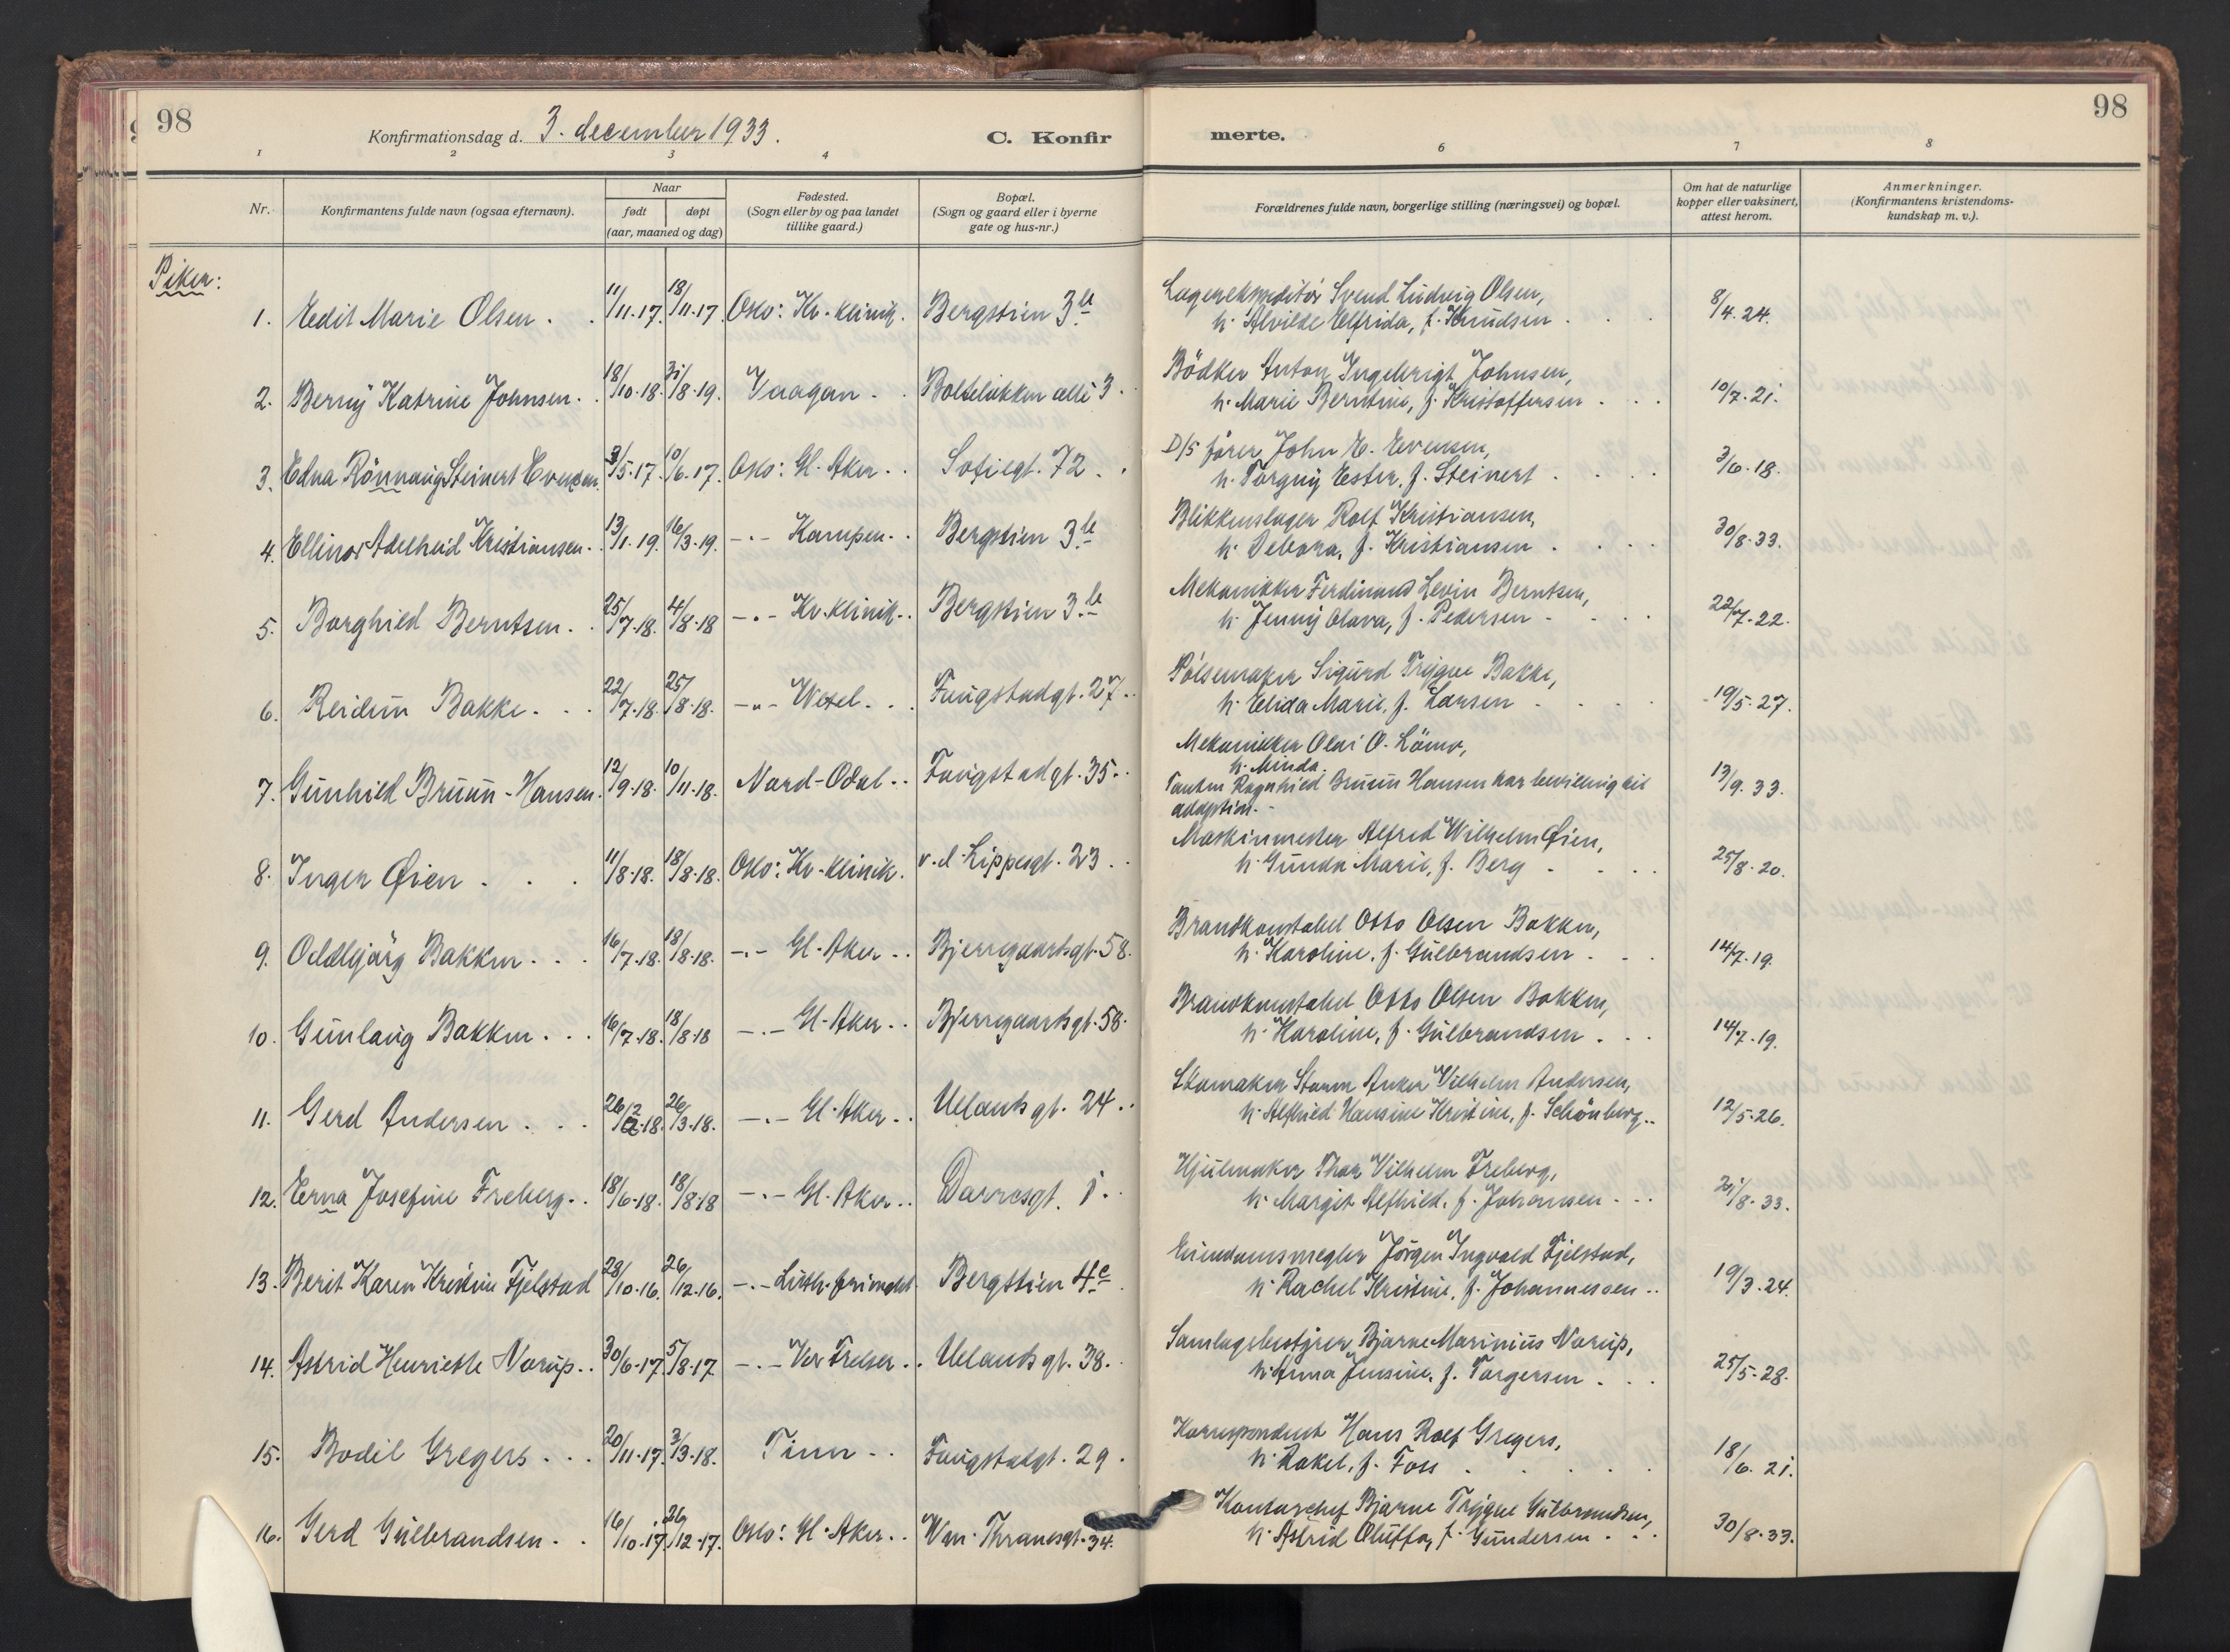 98
Konfirmationsdag d. 3. december 1933.
C. Konfir
merte.
98
1 2 3 4 6 7 8
Nr.
Konfirmantens fulde navn (ogsaa efternavn).
Naar
født
døpt
(aar, maaned og dag)
Fødested.
(Sogn eller by og paa landet
tillike gaard.)
Bopæl.
(Sogn og gaard eller i byerne
gate og hus-nr.)
Forældrenes fulde navn, borgerlige stilling (næringsvei) og bopæl.
Om hat de naturlige
kopper eller vaksinert,
attest herom.
Anmerkninger.
(Konfirmantens kristendoms-
kundskap m. v.).
Piker:
1. Edit Marie Olsen. 11/11.17. 18/11.17. Oslo: Kv. klinik. Bergstien 3b
Lagerekspeditør Svend Ludvig Olsen,
h. Alvilde Elfrida, f. Knudsen 8/4.24.
2. Berny Katrine Johnsen. 18/10.18. 31/8.19. Vaagan. Bolteløkken allé 3.
Bødker Anton Ingebrigt Johnsen,
h. Marie Berntine, f. Kristoffersen 10/7.21.
3. Edna Rønnaug Steinert Evensen. 3/5.17. 10/6.17. Oslo: Gl. Aker. Sofiegt. 72.
D/S fører John E. Evensen,
h. Torgny Ester, f. Steinert 3/6.18.
4. Ellinor Adelheid Kristiansen. 13/1.19. 16/3.19. -"- Kampen. Bergstien 3b
Blikkenslager Rolf Kristiansen,
h. Debora, f. Kristiansen 30/8.33.
5. Borghild Berntsen. 25/7.18. 4/8.18 -"- Kv. klinik. Bergstien 3b
Mekanikker Ferdinand Levin Berntsen,
h. Jenny Olava, f. Pedersen 22/7.22.
6. Reidun Bakke. 22/7.18. 25/8.18. -"- Wexel. Faugstadgt. 27.
Pølsemaker Sigurd Trygve Bakke,
h. Elida Marie, f. Larsen 19/5.27.
7. Gunhild Bruun-Hansen. 12/9.18. 10/11.18. Nord-Odal. Faugstadgt. 35.
Mekanikker Olai O. Lömo,
h. Minda.
Tanten Ragnhild Bruun Hansen har bevilling til
adoption. 13/9.33.
8. Inger Øien. 11/8.18. 18/8.18. Oslo: Kv. klinik. v. d. Lippesgt. 23.
Maskinmester Alfred Wilhelm Øien,
h. Gunda Marie, f. Berg 25/8.20.
9. Oddbjørg Bakken. 16/7.18. 18/8.18. -"- Gl. Aker. Bjerregaardsgt. 58.
Brandkonstabel Otto Olsen Bakken,
h. Karoline, f. Gulbrandsen. 14/7.19.
10. Gunlaug Bakken. 16/7.18. 18/8.18 -"- Gl. Aker. Bjerregaardsgt. 58.
Brandkonstabel Otto Olsen Bakken,
h. Karoline, f. Gulbrandsen. 14/7.19.
11. Gerd Andersen. 26/2.18. 26/3.18. -"- Gl. Aker. Uelandsgt. 24.
Skomaker Storm Anker Vilhelm Andersen,
h. Alfhild Hansine Kristine, f. Schönberg. 12/5.26.
12. Erna Josefine Freberg. 18/6.18. 18/8.18 -"- Gl. Aker. Darresgt. 1.
Hjulmaker Thor Vilhelm Freberg,
h. Margit Alfhild, f. Johansen. 21/8.33.
13. Berit Karen Kristine Fjelstad 28/10.16. 26/12.16. -"- Luth. frimenh. Bergstien 4c
Eiendomsmegler Jörgen Ingvald Fjelstad,
h. Rachel Kristine, f. Johannessen. 19/3.24.
14. Astrid Henriette Norup. 30/6.17. 5/8.17. -"- Vor Frelser. Uelandsgt. 38.
Samlagsbestyrer Bjarne Marinius Norup,
h. Anna Jensine, f. Torgersen. 25/5.28.
15. Bodil Gregers. 20/11.17. 3/3.18. Tinn. Faugstadgt. 29.
Korrespondent Hans Rolf Gregers,
h. Rakel, f. Foss 18/6.21.
16. Gerd Gulbrandsen. 16/10.17. 26/12.17. Oslo: Gl. Aker. Wm. Thranesgt. 34.
Kontorchef Bjarne Trygve Gulbrandsen,
h. Astrid Oluffa, f. Gundersen. 30/8.33.